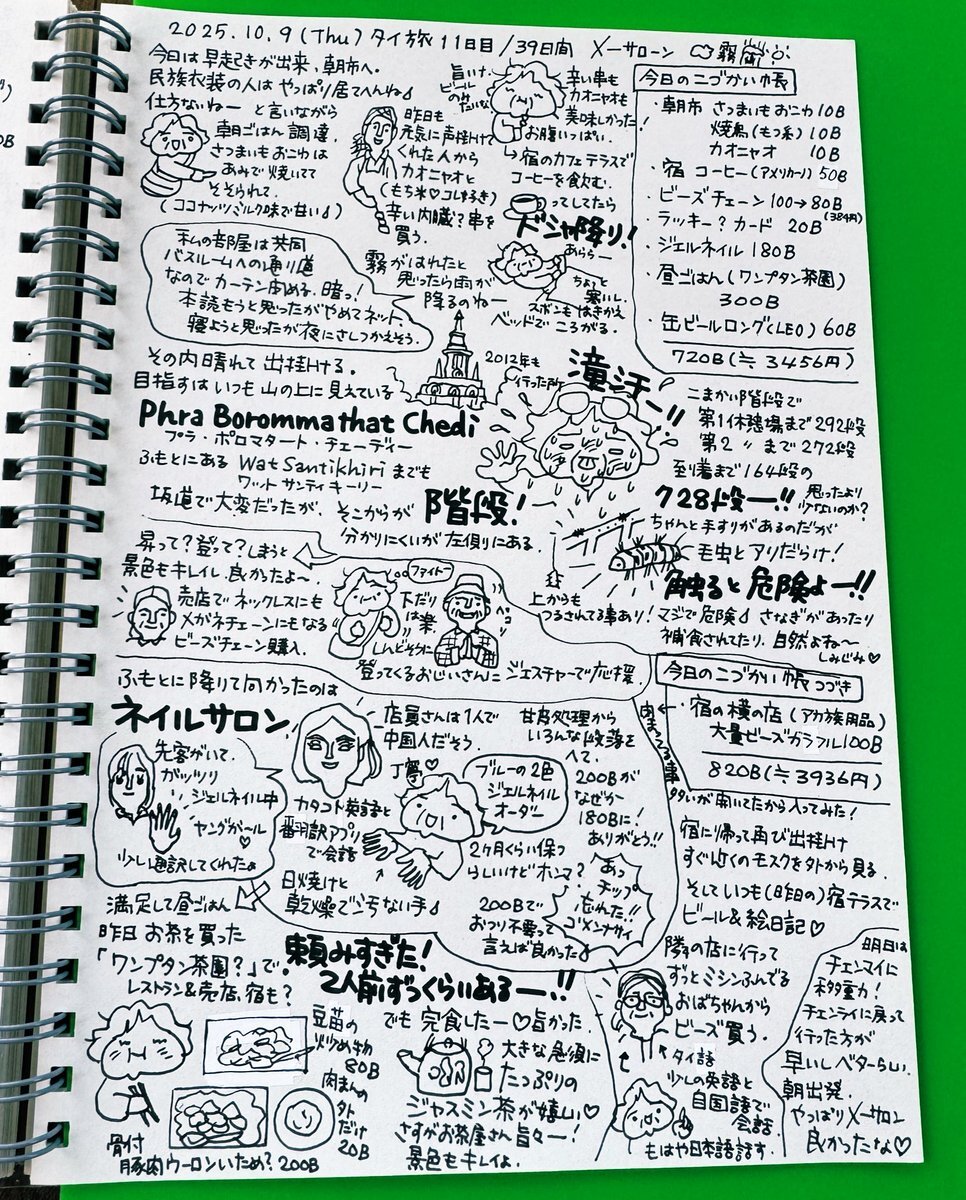 2025.10.9 (Thu) タイ旅 11日目 / 39日間 メーサローン 霧雨
今日は早起きが出来、朝市へ。
民族衣装の人は やっぱり居てへんね
仕方ないねー と言いながら
朝ごはん調達。
さつまいもおこわは
あみで焼いてて
そそられて。
(ココナッツミルク味で甘い♪)
昨日も
元気に声掛けて
くれた人から
カオニャオと
(もち米♡コレ好き)
辛い内臓?串を
買う。
旨いけ
ビール
のみたいな
辛い串も
カオニャオも
美味しかった!
お腹いっぱい。
→宿のカフェテラスで
コーヒーを飲む。
ってしてたら
ドシャ降り!
私の部屋は共同
バスルームへの通り道
なのでカーテン閉める。暗っ!
本読もうと思ったがやめてネット、
寝ようと思ったが夜にさしつかえそう。
霧がはれたと
思ったら雨が
降るのねー
あららー
ちょっと
寒いし。
ズボンもはきかえ
ベッドで ころがる。
今日のこづかい帳
・朝市 さつまいもおこわ 10B
焼鳥(もつ系) 10B
カオニャオ 10B
・宿 コーヒー(アメリカーノ) 50B
・ビーズチェーン 100→80B
(384円)
・ラッキー?カード 20B
・ジェルネイル 180B
・昼ごはん(ワンプタン茶園)
300B
・缶ビールロング(LEO) 60B
720B(≒ 3456円)
その内晴れて出掛ける。
目指すはいつも山の上に見えている
2012年も
行った所
Phra Borommathat Chedi
プラ・ボロマタート・チェーディー
ふもとにある Wat Santikhiri までも
ワット サンティキーリー
坂道で大変だったが、そこからが 階段!
分かりにくいが左側にある。
滝汗ー!!
こまかい階段で
第1休憩場まで292段
第2 〃 まで272段
到着まで164段の
728段ー!! 思ったより
少ないのか?
ちゃんと手すりがあるのだが
毛虫とアリだらけ!
触ると危険よー!!
上からも
つるされてる事あり!
マジで危険♪ さなぎがあったり
補食されてたり、自然よね〜
しみじみ♡
昇って?登って?しまうと
景色もキレイし、良かったよ〜。
売店でネックレスにも
メガネチェーンにもなる
ビーズチェーン購入。
ファイトー
下だり
は楽。
しんどそうに
ペコ
登ってくるおじいさんに ジェスチャーで応援。
ふもとに降りて向かったのは
ネイルサロン
先客がいて、
ガッツリ
ジェルネイル中
ヤングガール♡
少し通訳してくれた♪
店員さんは1人で
中国人だそう。
カタコト英語と
翻訳アプリ
で会話
丁寧♡
甘皮処理から
いろんな段階を
へて、
ブルーの2色
ジェルネイル
オーダー
200Bが
なぜか
180Bに!
ありがとう!!
2ヶ月くらい保つ
らしいけどホンマ?
日焼けと
乾燥で汚ない手♪
200Bで
おつり不要って
言えば良かった♪
あっ
チップ
忘れた!!
ゴメンナサイ
今日のこづかい帳 つづき
・宿の横の店(アカ族用品)
大量ビーズカラフル100B
820B(≒ 3936円)
が開いてたから入ってみた!
宿に帰って再び出掛け
すぐ近くのモスクを外から見る。
そしていつも(昨日の)宿テラスで
ビール&絵日記♡
満足して昼ごはん
昨日 お茶を買った
「ワンプタン茶園?」で
レストラン&売店、宿も?
頼みすぎた!
2人前ずつくらいあるー!!
豆苗の
炒め物
80B
肉まんの
外
だけ
20B
骨付
豚肉ウーロンいため? 200B
でも 完食したー♡旨かった。
大きな急須に
たっぷりの
ジャスミン茶が嬉しい♡
さすがお茶屋さん旨々ー!
景色もキレイよ。
隣の店に行って
ずっとミシンふんでる
おばちゃんから
ビーズ買う。
タイ語
少しの英語と
自国語で
会話。
もはや日本語話す。
明日は
チェンマイに
移動!
チェンライに戻って
行った方が
早いしベターらしい。
朝出発。
やっぱりメーサロン
良かったな♡